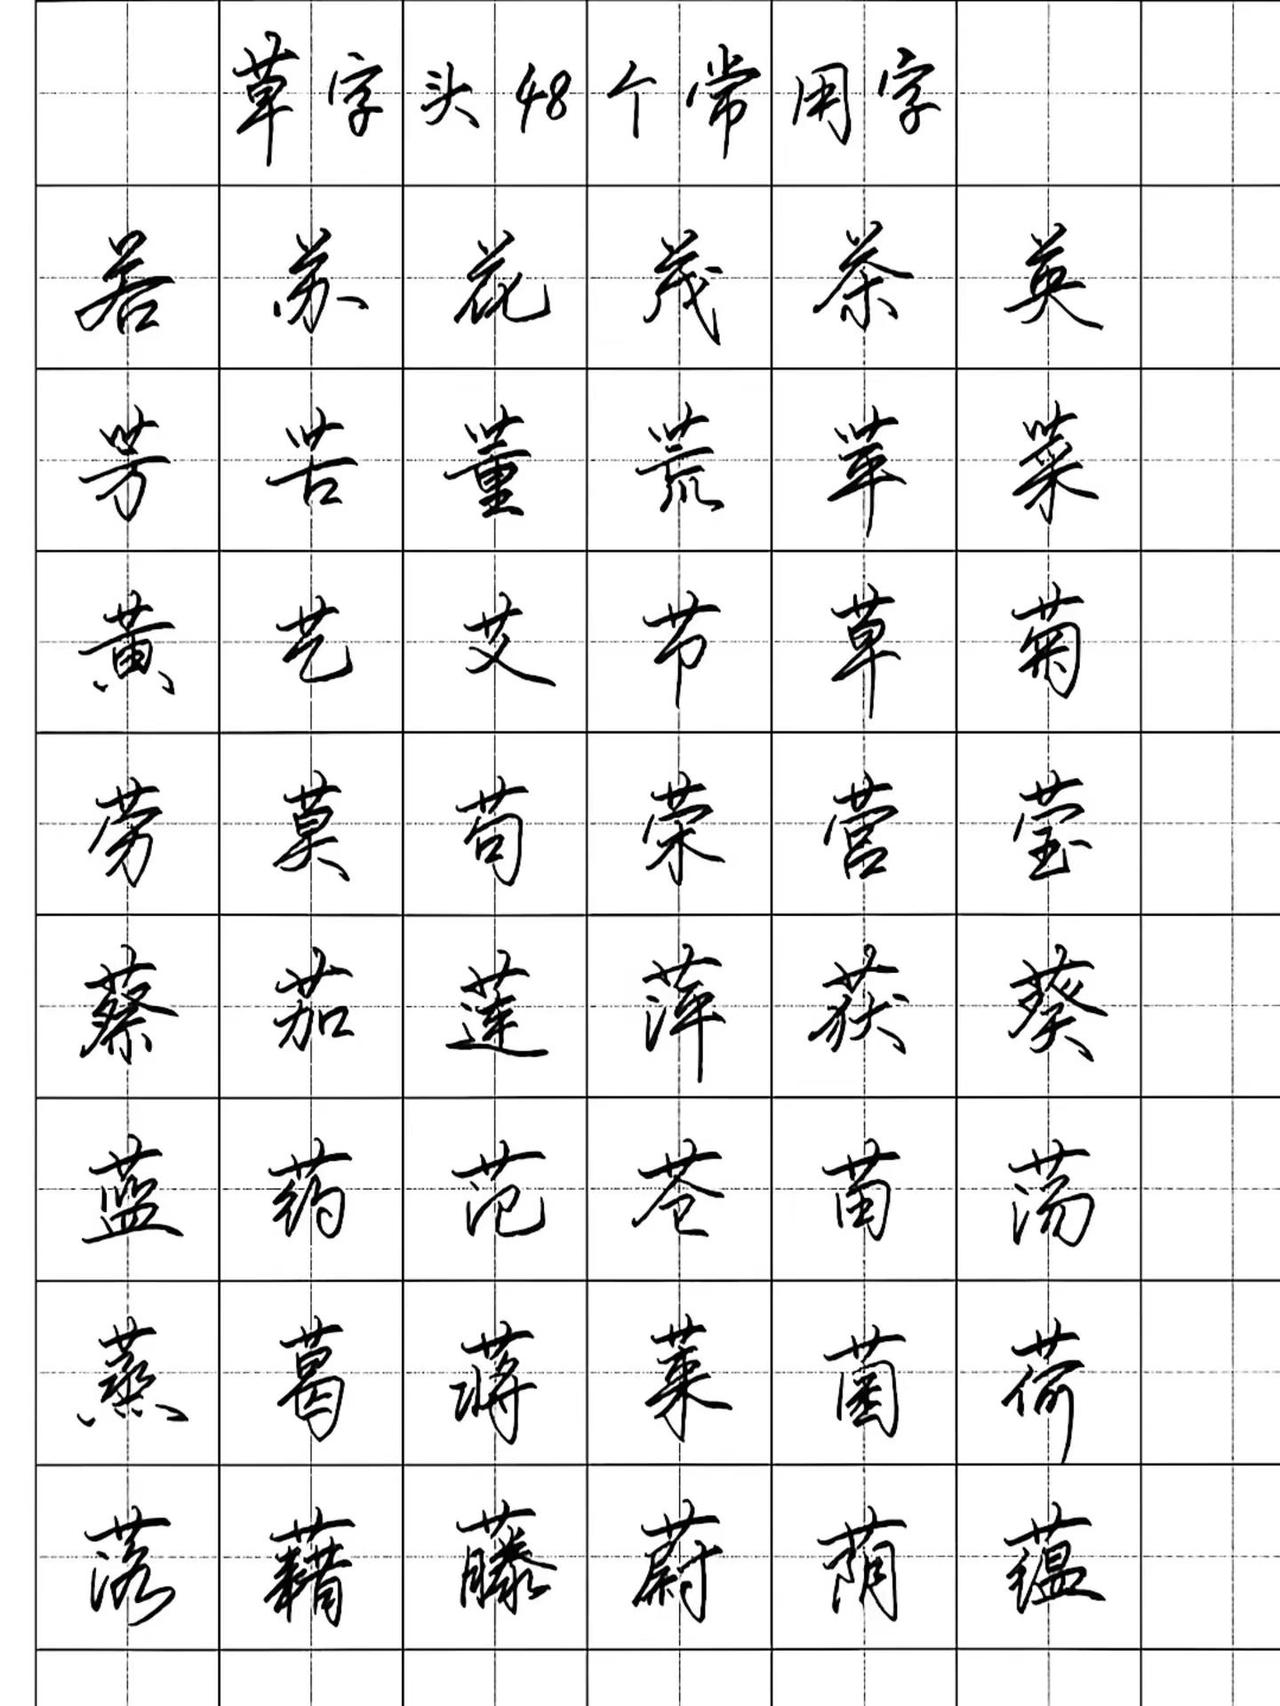 草字头48个常用字
若苏花茂茶英
芳苦董荒苹菜
黄艺艾节草菊
劳莫苟荣营莹
蔡茄莲萍获葵
蓝药范苍苗荡
蒸葛蒋莱菌荷
落藉藤蔚荫蕴